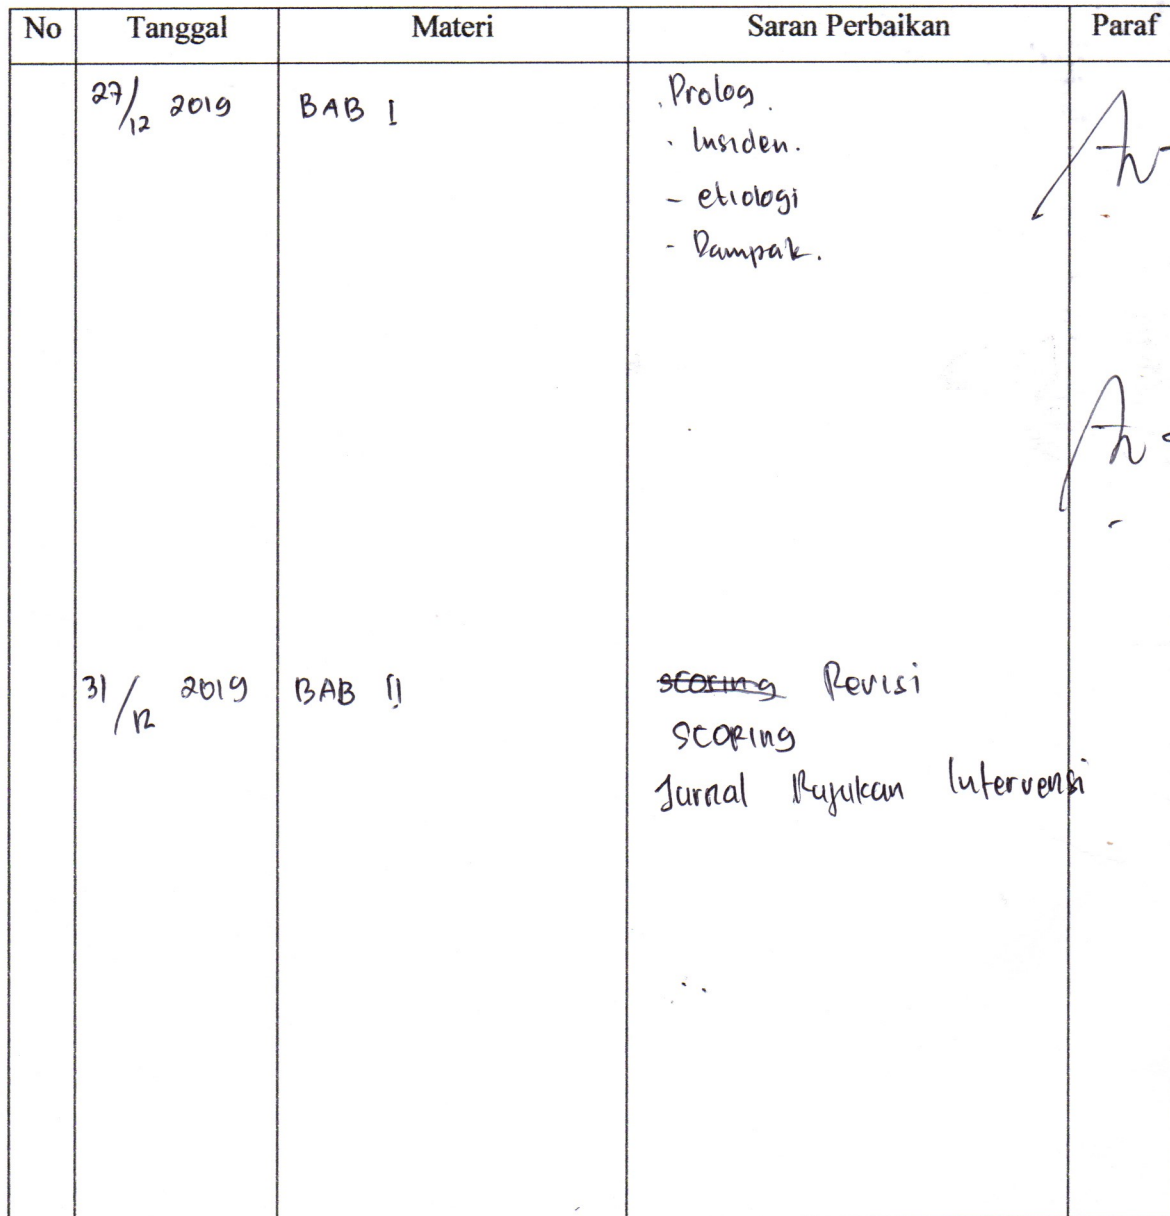 No Tanggal Materi Saran Perbaikan Paraf
27/12 2019 BAB I . Prolog.
. Insiden.
- etiologi
- Dampak.
31/12 2019 BAB II scoring Revisi
scoring
Jurnal Rujukan Intervensi